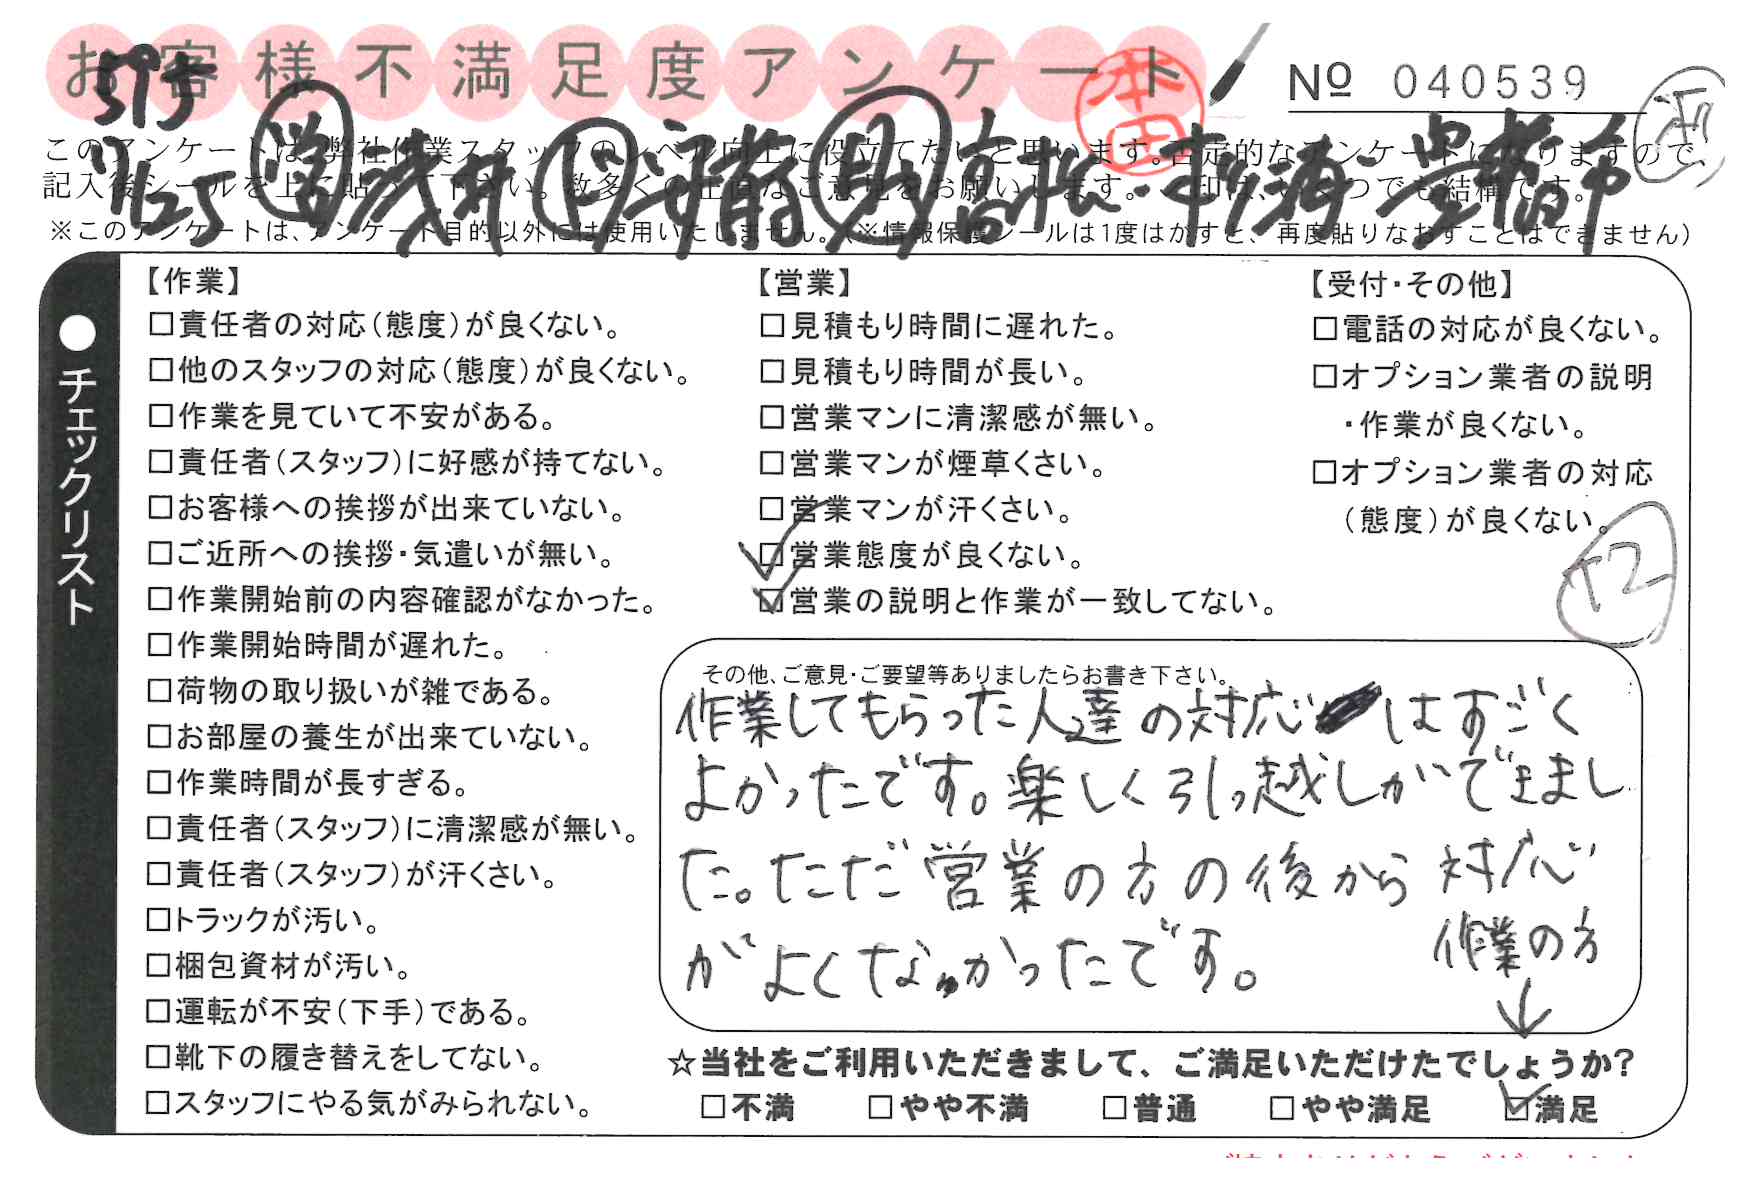 お客様不満足度アンケート
№ 040539
本田
このアンケートは、弊社作業スタッフのレベル向上に役立てたいと思います。否定的なアンケートになりますので、
記入後シールを上に貼って下さい。数多くの正直なご意見をお願いします。✓印は、いくつでも結構です。
※このアンケートは、アンケート目的以外には使用いたしません。(※情報保護シールは1度はがすと、再度貼りなおすことはできません)
●チェックリスト
【作業】
□責任者の対応(態度)が良くない。
□他のスタッフの対応(態度)が良くない。
□作業を見ていて不安がある。
□責任者(スタッフ)に好感が持てない。
□お客様への挨拶が出来ていない。
□ご近所への挨拶・気遣いが無い。
□作業開始前の内容確認がなかった。
□作業開始時間が遅れた。
□荷物の取り扱いが雑である。
□お部屋の養生が出来ていない。
□作業時間が長すぎる。
□責任者(スタッフ)に清潔感が無い。
□責任者(スタッフ)が汗くさい。
□トラックが汚い。
□梱包資材が汚い。
□運転が不安(下手)である。
□靴下の履き替えをしてない。
□スタッフにやる気がみられない。
【営業】
□見積もり時間に遅れた。
□見積もり時間が長い。
□営業マンに清潔感が無い。
□営業マンが煙草くさい。
□営業マンが汗くさい。
☑営業態度が良くない。
☑営業の説明と作業が一致してない。
【受付・その他】
□電話の対応が良くない。
□オプション業者の説明
・作業が良くない。
□オプション業者の対応
(態度)が良くない。
その他、ご意見・ご要望等ありましたらお書き下さい。
作業してもらった人達の対応はすごく
よかったです。楽しく引っ越しができまし
た。ただ営業の方の後から対応
がよくなかったです。
作業の方
↓
☆当社をご利用いただきまして、ご満足いただけたでしょうか?
□不満 □やや不満 □普通 □やや満足 ☑満足